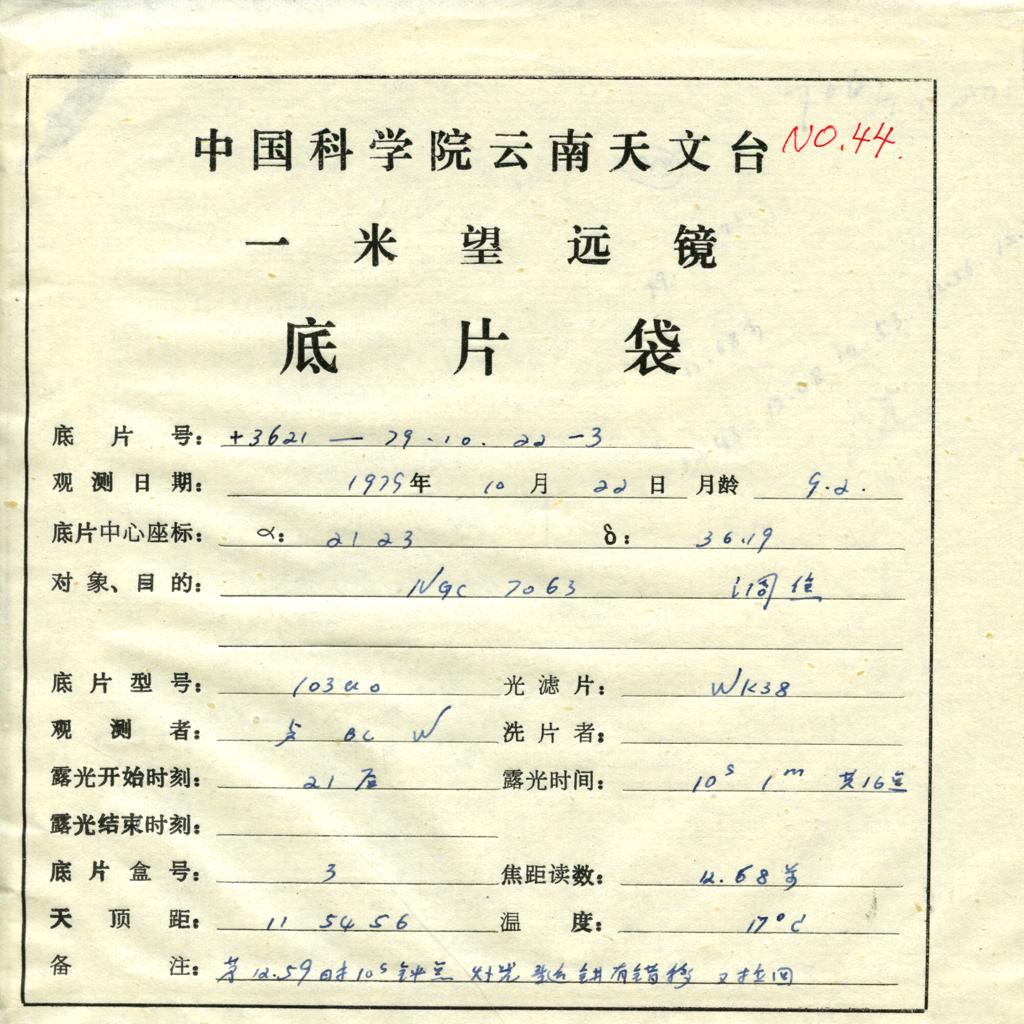 中国科学院云南天文台 NO.44.
一米望远镜
底片袋
底片号: +3621 — 79.10.22-3
观测日期: 1979年 10月 22日 月龄 9.2.
底片中心座标: α: 21 23 δ: 36.19
对象、目的: NGC 7063 调焦
底片型号: 103aO 光滤片: WK38
观测者: W 洗片者:
露光开始时刻: 21 露光时间: 10s 1m 共16点
露光结束时刻:
底片盒号: 3 焦距读数: 12.68
天顶距: 11 54 56 温度: 17°C
备注: 12.59时10s 有错移 又拉回